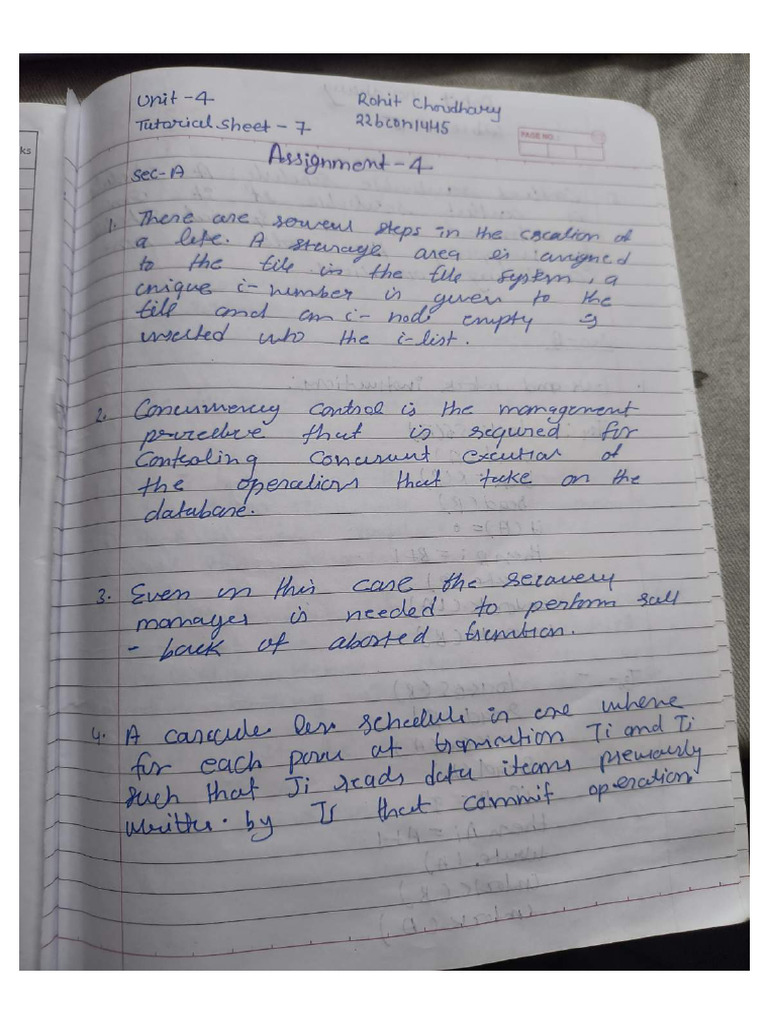 Unit-4
Rohit Choudhary
Tutorial Sheet-7
22bcon1445
PAGE NO.
Assignment-4
Sec-A
1. There are several steps in the creation of
a life. A storage area is assigned
to the file in the file system, a
unique i-number is given to the
file and an i-node empty is
inserted into the i-list.
2. Concurrency control is the management
procedure that is required for
controling concurrent execution of
the operations that take on the
database.
3. Even in this case the recovery
manager is needed to perform roll
-back of aborted
4. A cascade less schedule is one where
for each pair of transaction Ti and Tj
such that Ti reads data items previously
written by that commit operation
ks